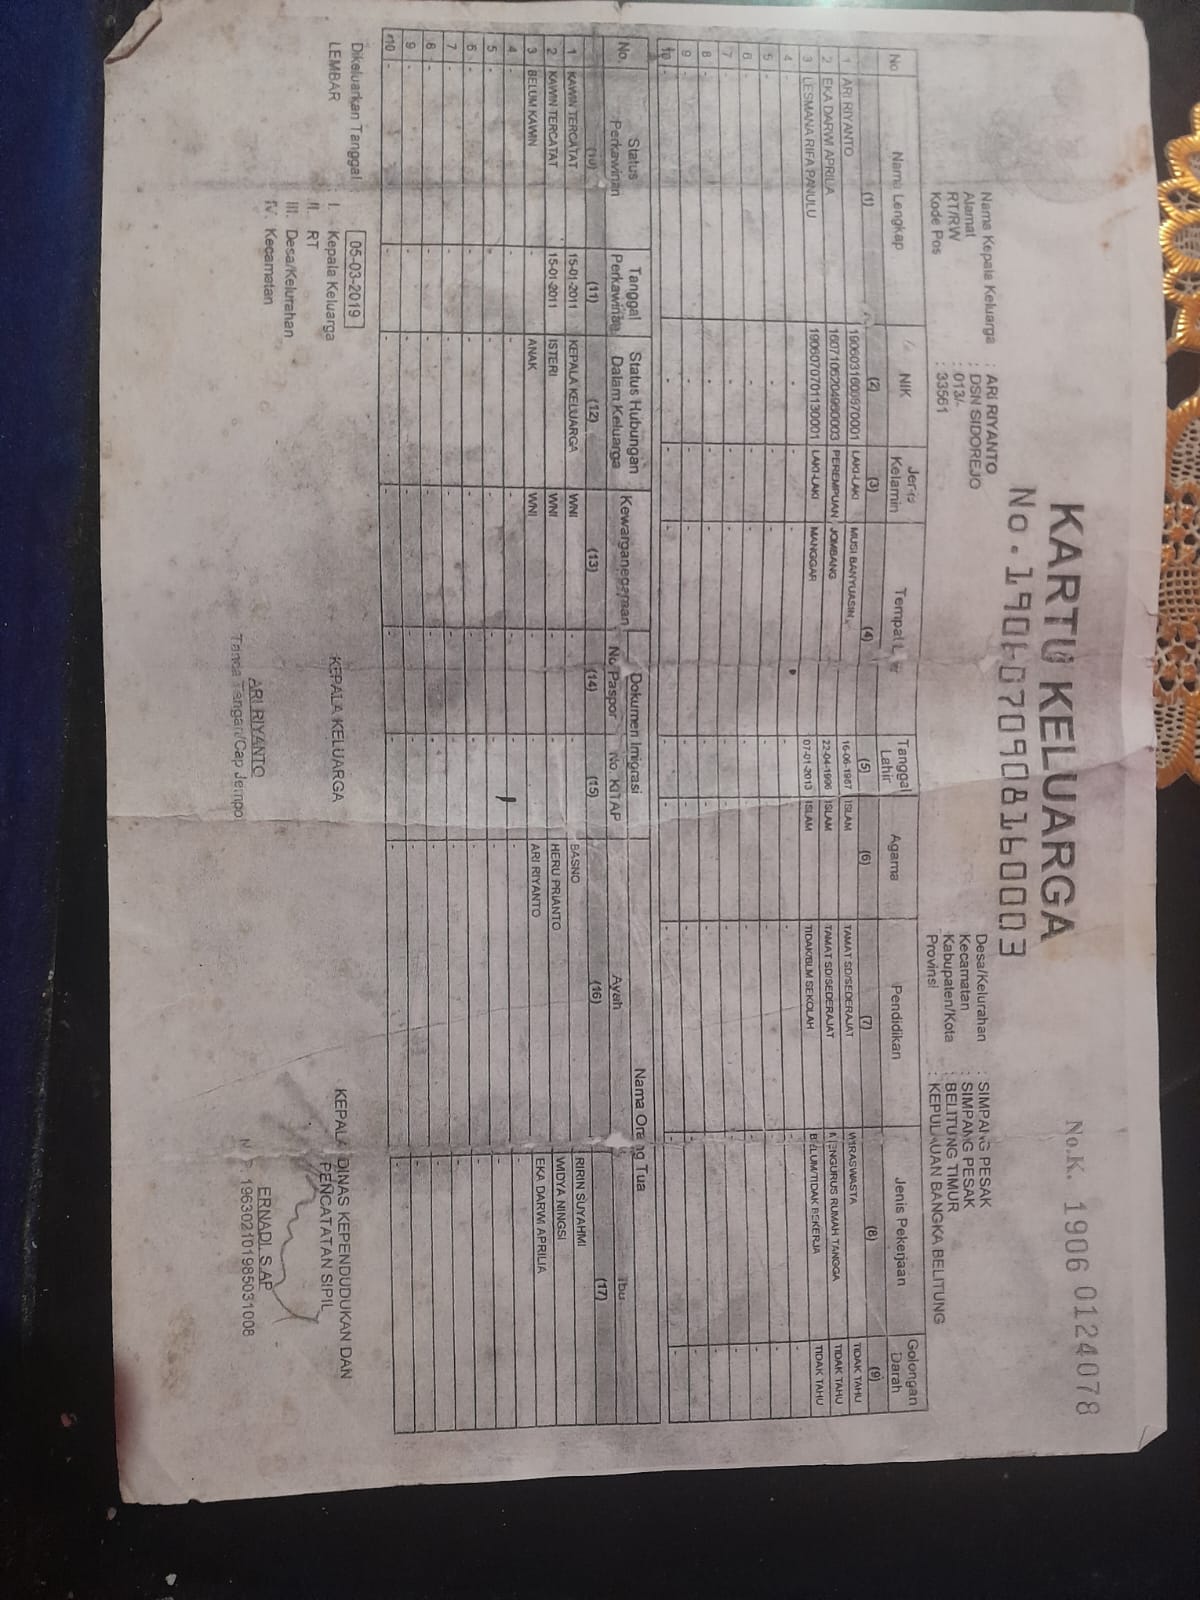 No.K. 1906 0124078
KARTU KELUARGA
No.1906070908160003
Nama Kepala Keluarga : ARI RIYANTO
Alamat : DSN SIDOREJO
RT/RW : 013/-
Kode Pos : 33561
Desa/Kelurahan : SIMPANG PESAK
Kecamatan : SIMPANG PESAK
Kabupaten/Kota : BELITUNG TIMUR
Provinsi : KEPULAUAN BANGKA BELITUNG
No Nama Lengkap NIK Jenis Kelamin Tempat Tanggal Lahir Agama Pendidikan Jenis Pekerjaan Golongan Darah
(1) (2) (3) (4) (5) (6) (7) (8) (9)
1 ARI RIYANTO LAKI-LAKI MUSI BANYUASIN ISLAM TAMAT SD/SEDERAJAT WIRASWASTA TIDAK TAHU
2 EKA DARWI APRILIA 1607106204960003 PEREMPUAN JOMBANG 22-04-1996 ISLAM TAMAT SD/SEDERAJAT MENGURUS RUMAH TANGGA TIDAK TAHU
3 LESMANA RIFA PANULU 1906070701130001 LAKI-LAKI MANGGAR 07-01-2013 ISLAM TIDAK/BLM SEKOLAH BELUM/TIDAK BEKERJA TIDAK TAHU
4 - - - - - - - - -
5 - - - - - - - - -
6 - - - - - - - - -
7 - - - - - - - - -
8 - - - - - - - - -
9 - - - - - - - - -
10 - - - - - - - - -
No. Status Perkawinan Tanggal Perkawinan Status Hubungan Dalam Keluarga Kewarganegaraan Dokumen Imigrasi Nama Orang Tua
No. Paspor No. KITAP Ayah Ibu
(10) (11) (12) (13) (14) (15) (16) (17)
1 KAWIN TERCATAT 15-01-2011 KEPALA KELUARGA WNI - - BASNO RIRIN SUYAHMI
2 KAWIN TERCATAT 15-01-2011 ISTERI WNI - - HERU PRIANTO WIDYA NINGSI
3 BELUM KAWIN - ANAK WNI - - ARI RIYANTO EKA DARWI APRILIA
4 - - - - - - - -
5 - - - - - - - -
6 - - - - - - - -
7 - - - - - - - -
8 - - - - - - - -
9 - - - - - - - -
10 - - - - - - - -
Dikeluarkan Tanggal : 05-03-2019
LEMBAR I. Kepala Keluarga
II. RT
III. Desa/Kelurahan
IV. Kecamatan
KEPALA KELUARGA
ARI RIYANTO
Tanda Tangan/Cap Jempol
KEPALA DINAS KEPENDUDUKAN DAN
PENCATATAN SIPIL
ERNADI, S.AP
NIP. 196302101985031008